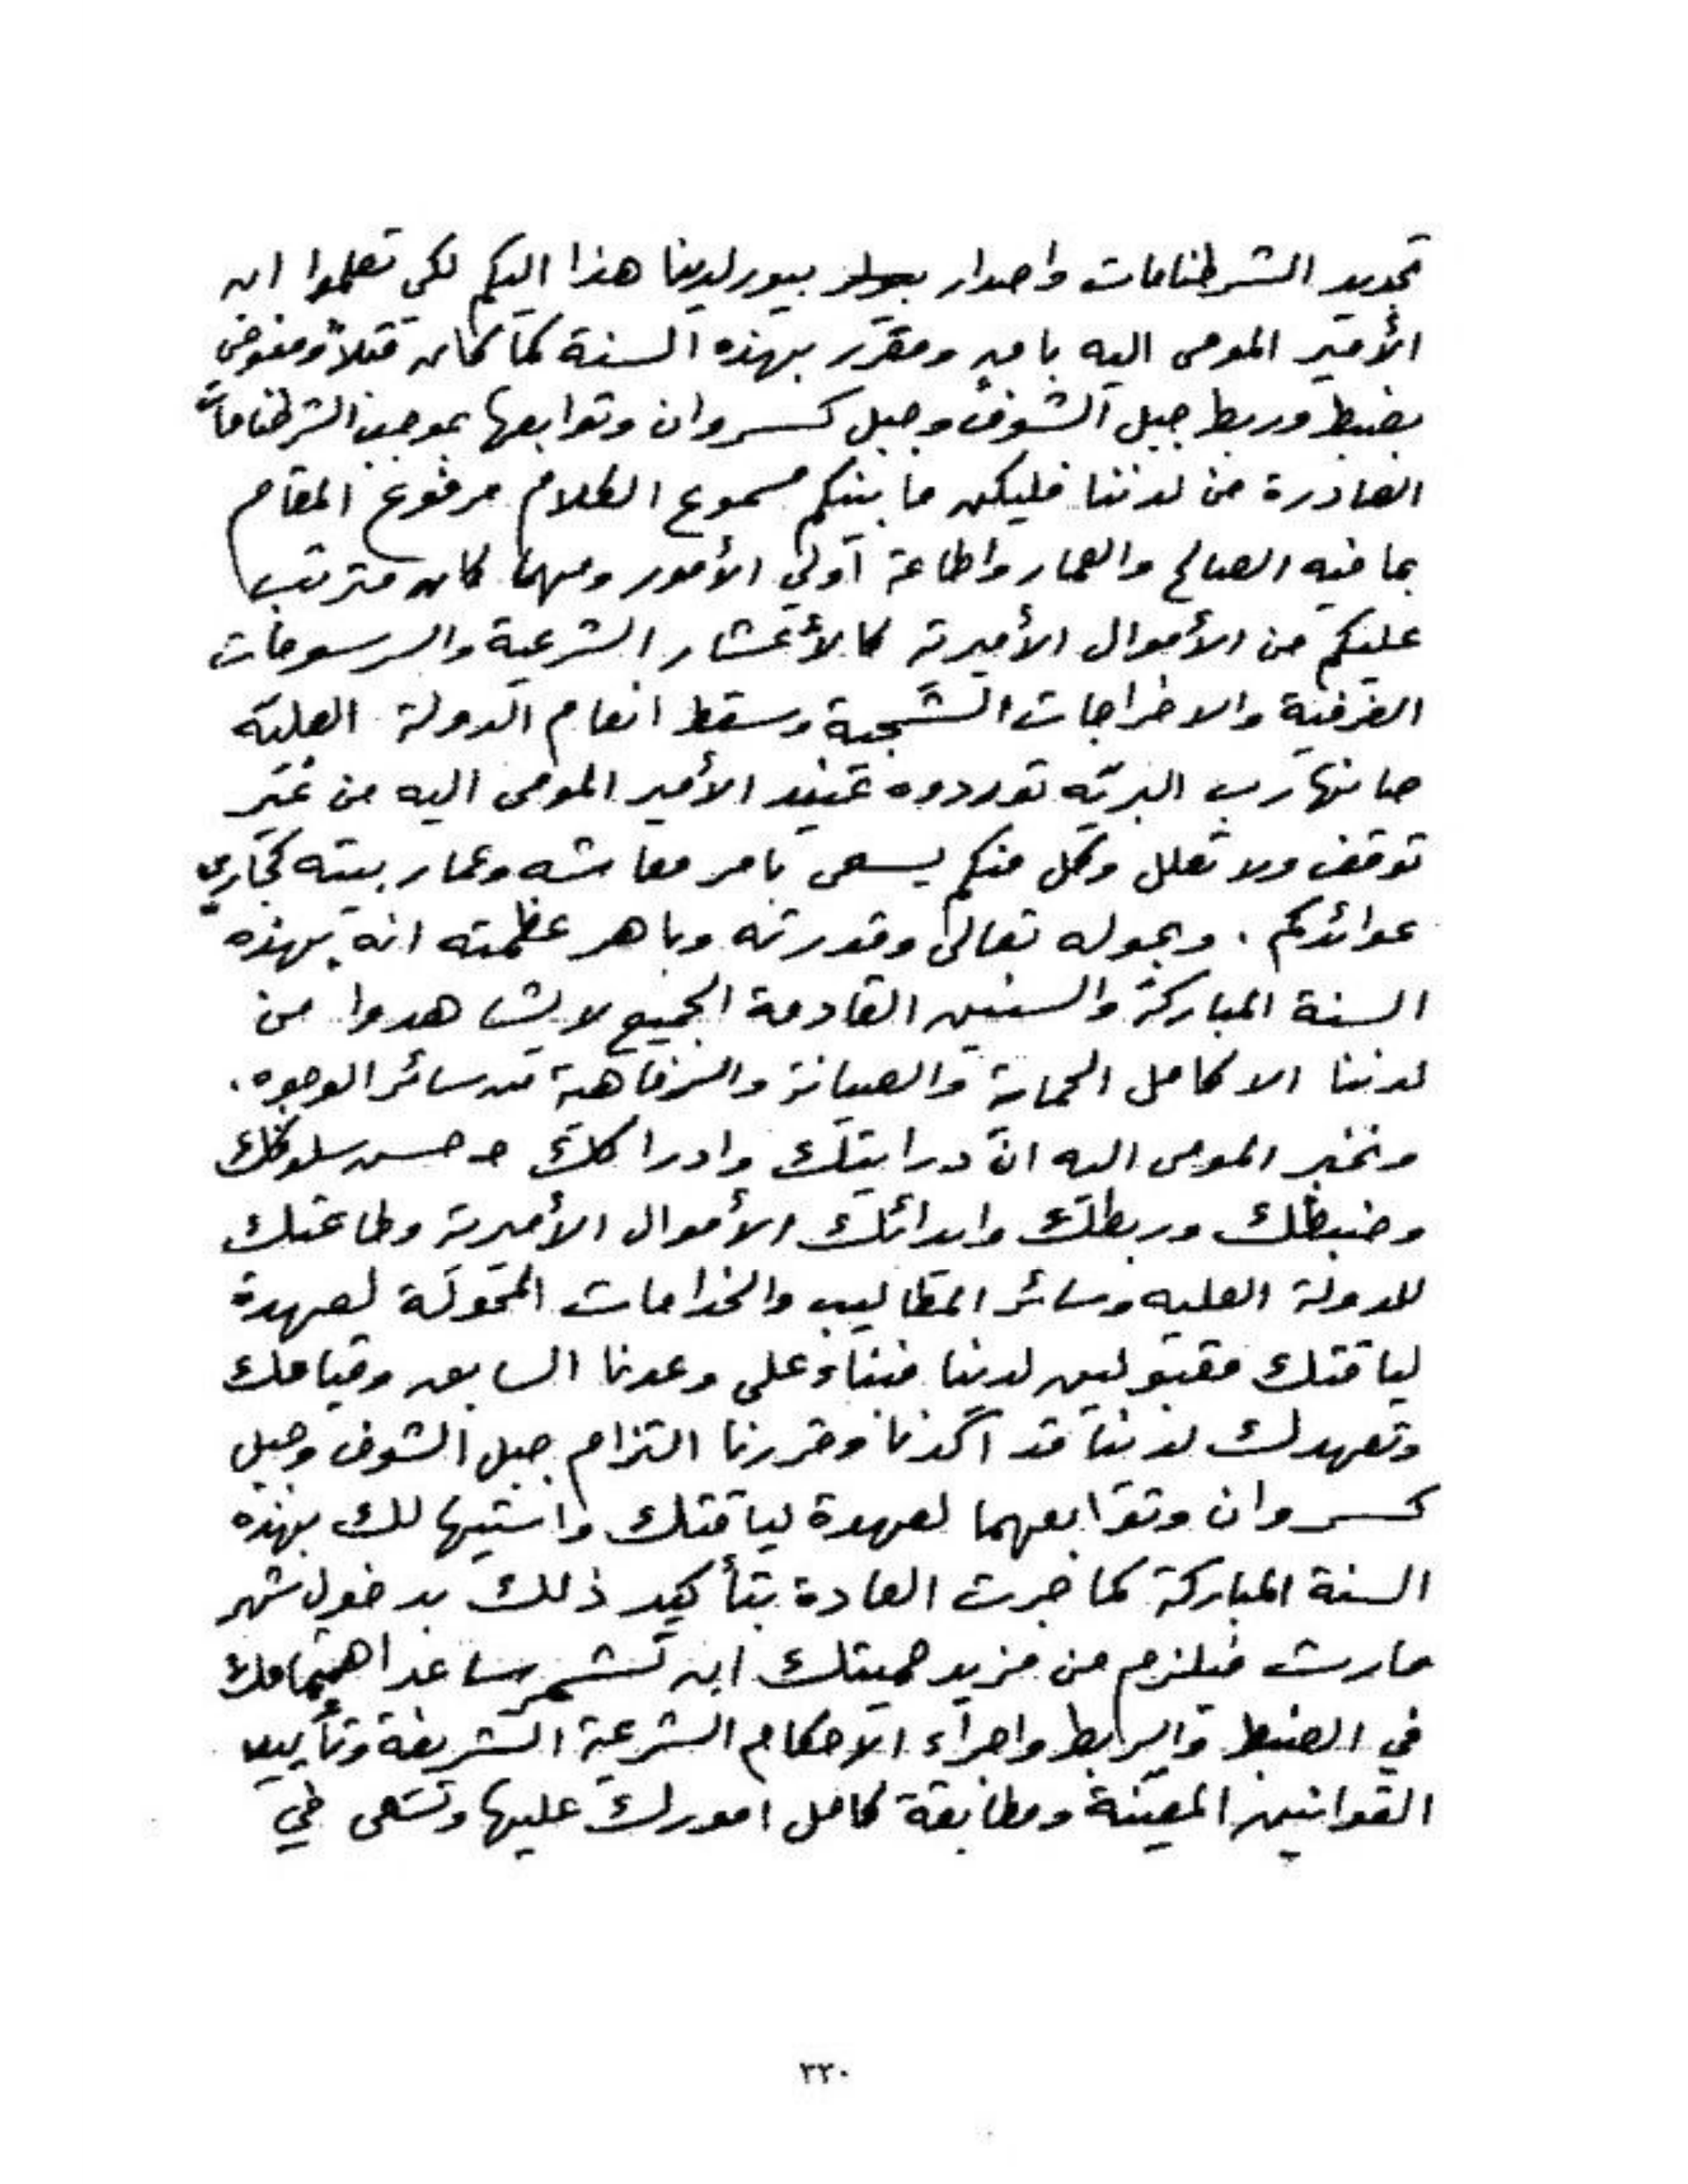 تجديد الشرطنامات واصدار بيورلدينا هذا اليكم لكي تعلموا ان
الأمير المومى اليه باق ومقرر بهذه السنة كما كان قبلاً ومفوض
بضبط وربط جبل الشوف وجبل كسروان وتوابعها بموجب الشرطنامات
الصادرة من لدننا فليكن ما بينكم مسموع الكلام مرفوع المقام
بما فيه الصالح والعمار واطاعة أولي الأمور ومهما كان مترتب
عليكم من الأموال الأميرية كالأعشار الشرعية والرسومات
العرفية والاخراجات وسقط انعام الدولة العلية
صانها رب البرية توردوه عند الأمير المومى اليه من غير
توقف ولا تعلل وكل منكم يسعى بامر معاشه وعمار بيته كجاري
عوائدكم . وبحوله تعالى وقدرته وباهر عظمته انه بهذه
السنة المباركة والسنين القادمة الجميع لا يشاهدوا من
لدننا الا كامل الحماية والصيانة والرفاهية من سائر الوجوه .
ونخبر المومى اليه ان درايتك وادراكك وحسن سلوكك
وضبطك وربطك وايدائك الأموال الأميرية وطاعتك
للدولة العليه وسائر المطاليب والخدامات المحولة لعهدة
لياقتك مقبولين لدينا فبناءً على وعدنا السابق وقيامك
وتعهدك لدننا قد أكدنا وقررنا التزام جبل الشوف وجبل
كسروان وتوابعهما لعهدة لياقتك لك بهذه
السنة المباركة كما جرت العادة بتأكيد ذلك بدخول شهر
مارت فيلزم من مزيد حميتك ان تشمر ساعد اهتمامك
في الضبط والربط واجراء الاحكام الشرعية الشريفة وتأييد
القوانين المعينة ومطابقة كامل امورك عليها وتسعى في
٣٣٠